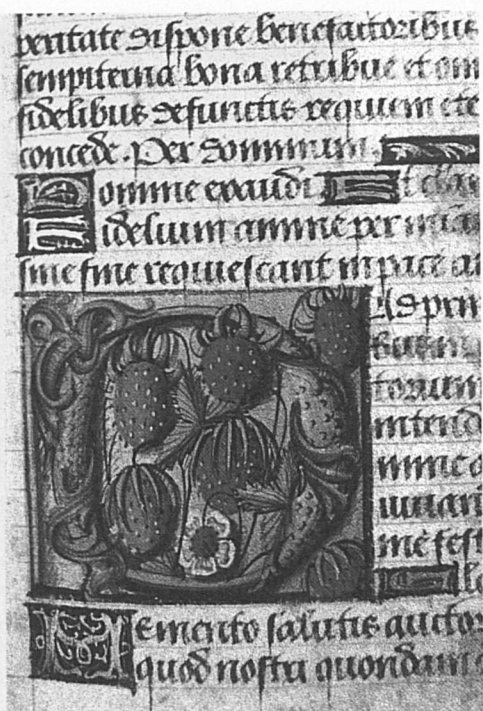 veritate dispone benefactoribus
sempiterna bona retribue et om
fidelibus defunctis requiem ete
concede. Per dominum.
Domine exaudi Et cla
Fidelium anime per mia
sine fine requiescant in pace a
Ad prim
torum
intend
me fest
Memento salutis auctor
quod nostri quondam